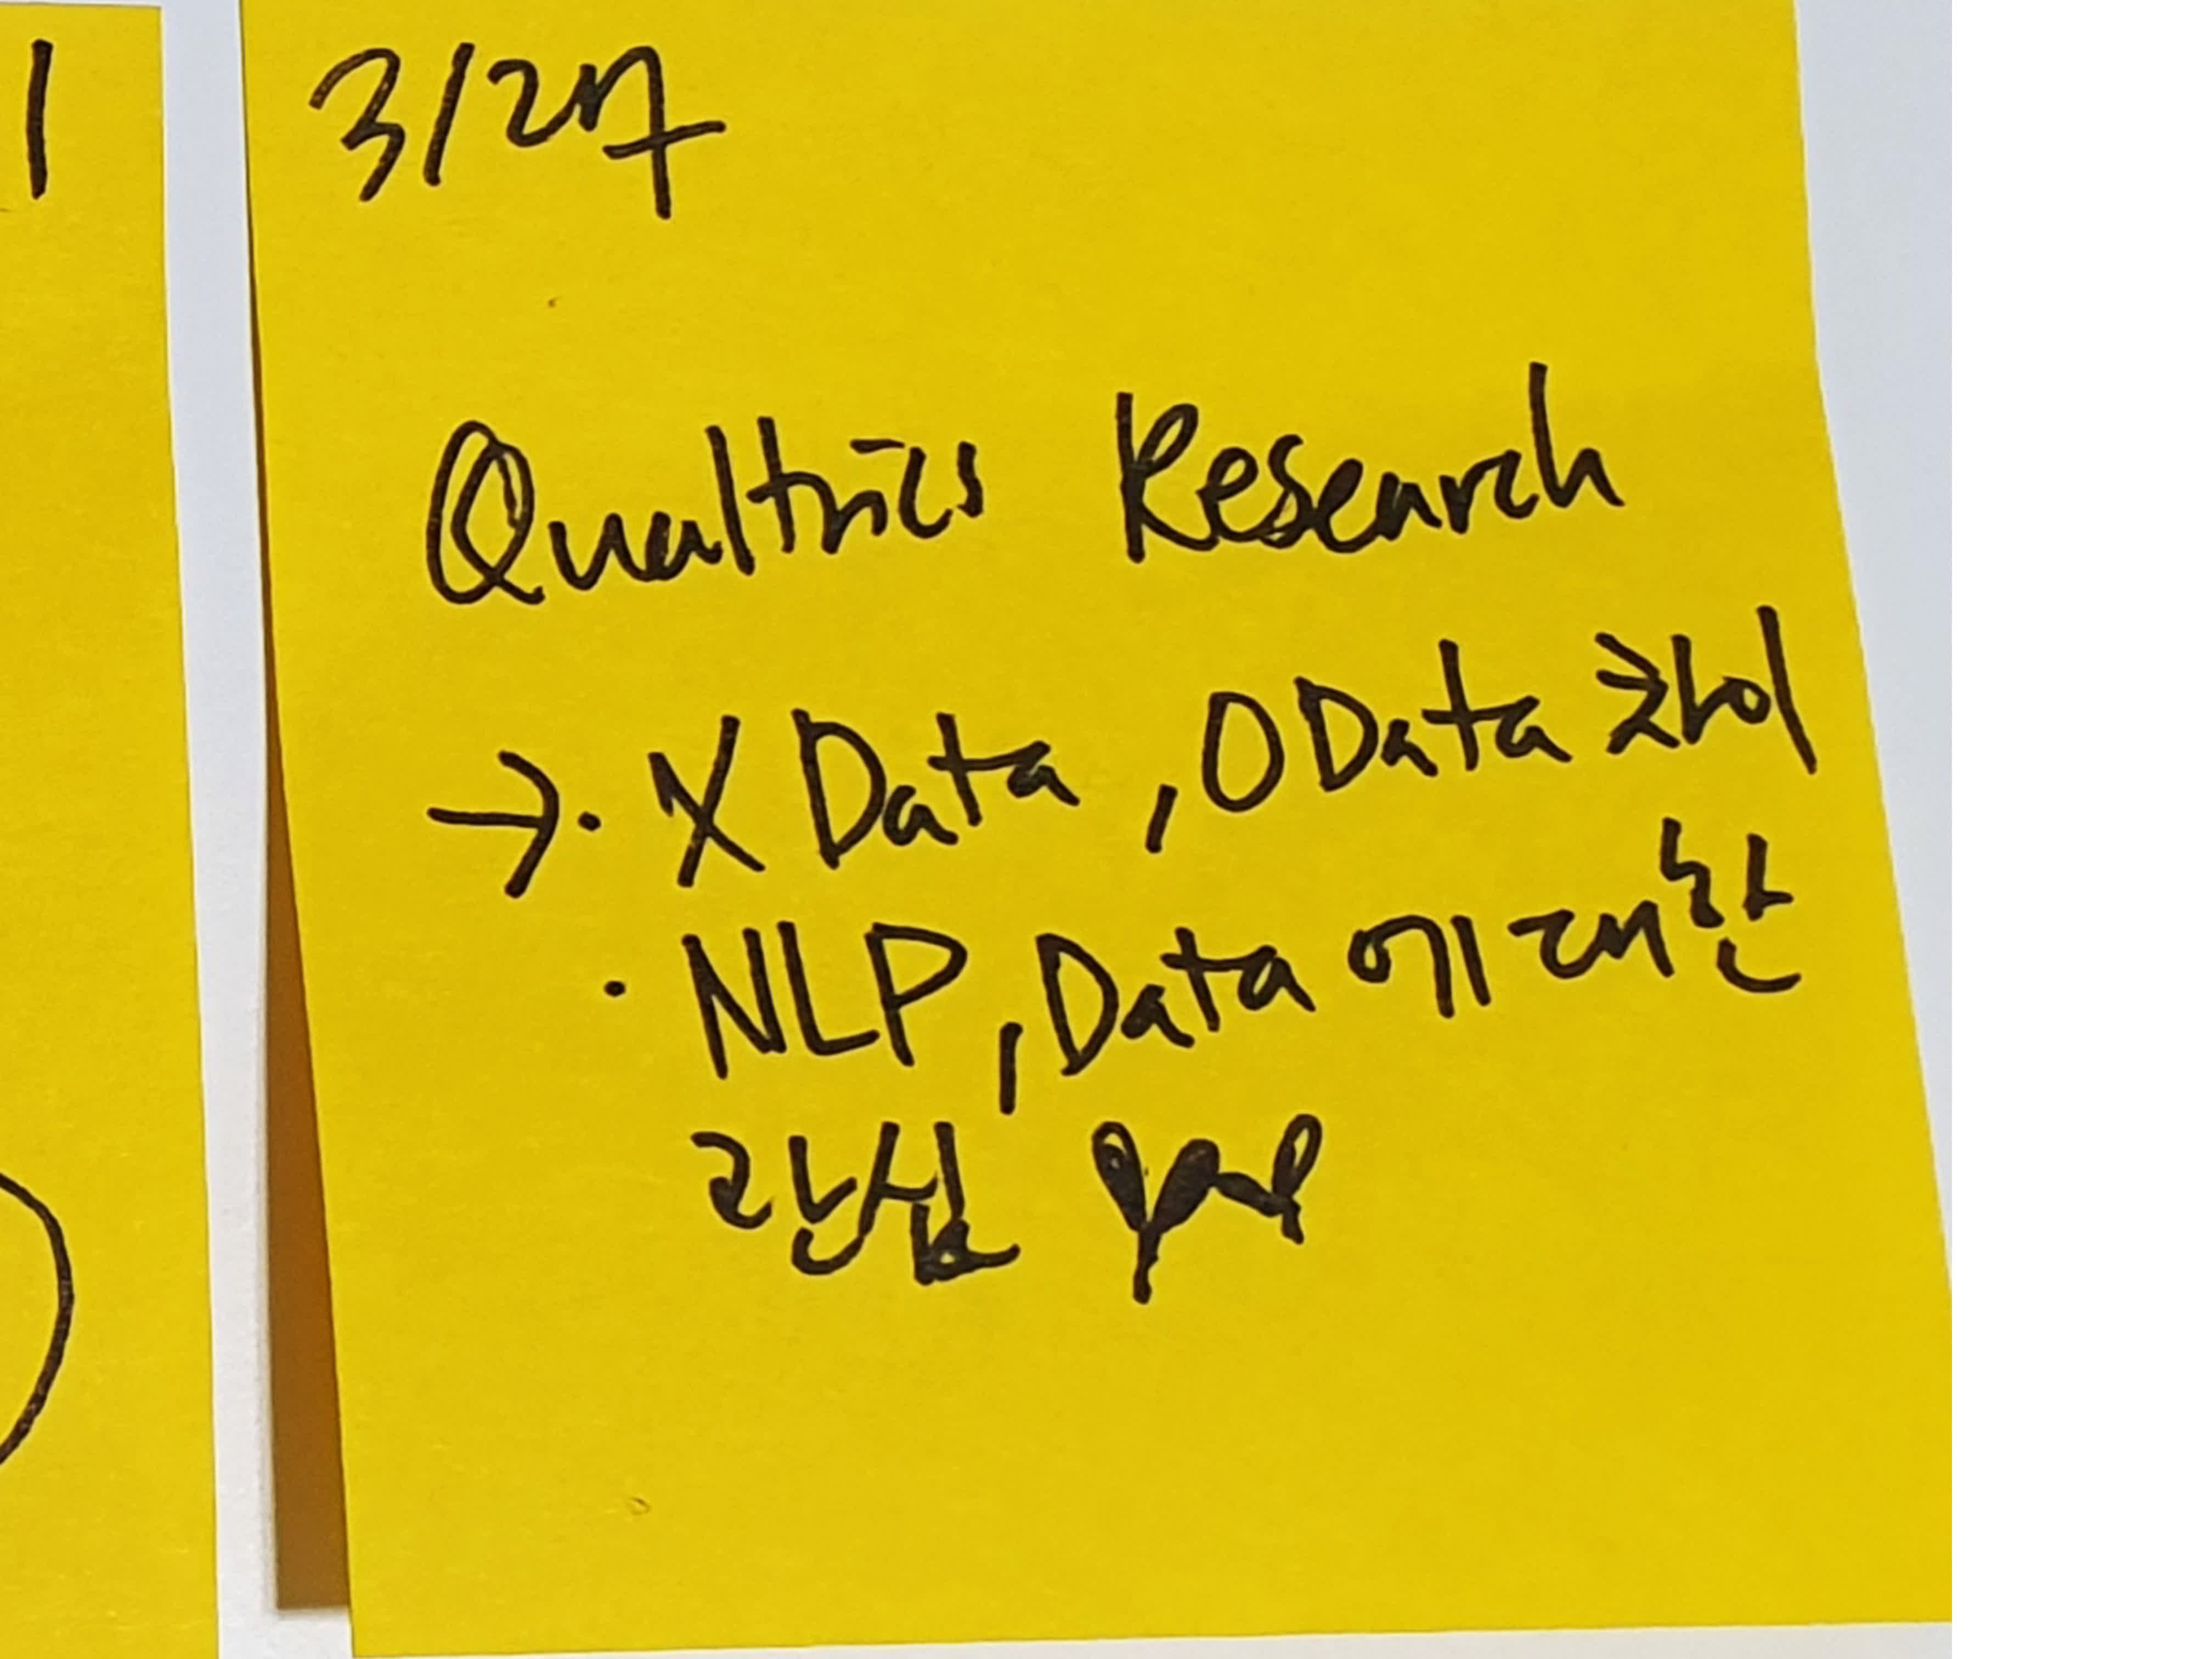 Qualtrics Research
→· X Data, O Data 차이
· NLP, Data 에 대한
관심